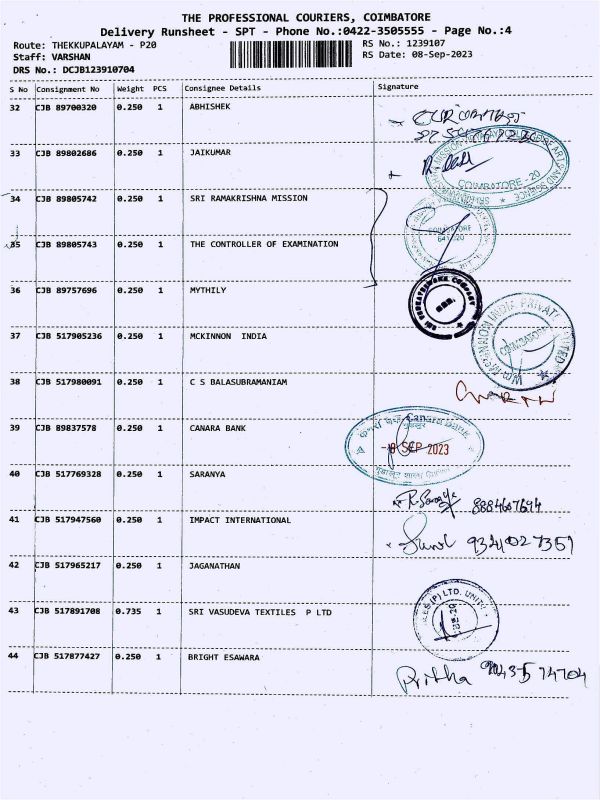 THE PROFESSIONAL COURIERS, COIMBATORE
Delivery Runsheet - SPT - Phone No.:0422-3505555 - Page No.:4
Route: THEKKUPALAYAM - P20 RS No.: 1239107
Staff: VARSHAN RS Date: 08-Sep-2023
DRS No.: DCJB123910704
S No Consignment No Weight PCS Consignee Details Signature
32 CJB 89700320 0.250 1 ABHISHEK
33 CJB 89802686 0.250 1 JAIKUMAR
COIMBATORE - 20
34 CJB 89805742 0.250 1 SRI RAMAKRISHNA MISSION
COIMBATORE
35 CJB 89805743 0.250 1 THE CONTROLLER OF EXAMINATION
36 CJB 89757696 0.250 1 MYTHILY
37 CJB 517905236 0.250 1 MCKINNON INDIA
COIMBATORE
38 CJB 517980091 0.250 1 C S BALASUBRAMANIAM
39 CJB 89837578 0.250 1 CANARA BANK
Canara Bank
SEP 2023
40 CJB 517769328 0.250 1 SARANYA
8884607694
41 CJB 517947560 0.250 1 IMPACT INTERNATIONAL
42 CJB 517965217 0.250 1 JAGANATHAN
43 CJB 517891708 0.735 1 SRI VASUDEVA TEXTILES P LTD
44 CJB 517877427 0.250 1 BRIGHT ESAWARA
Pritha